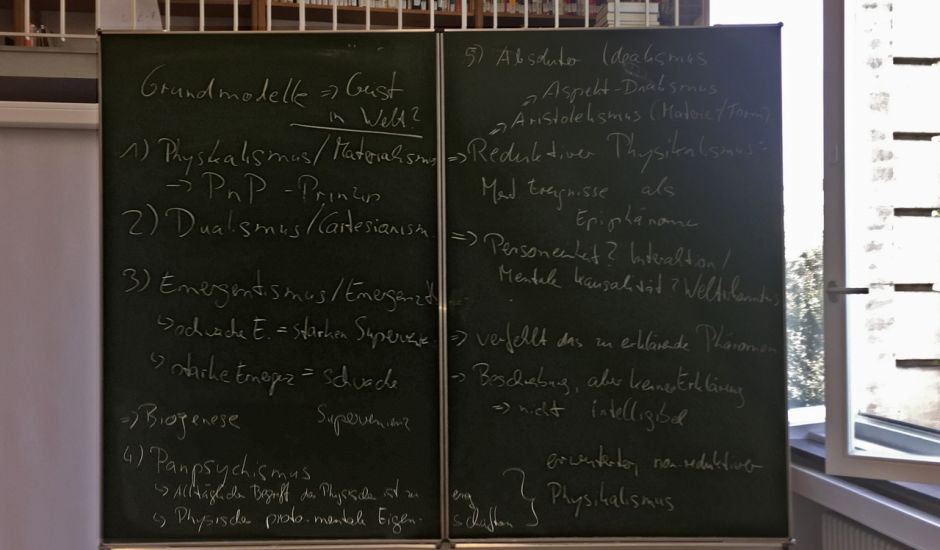 Grundmodelle => Geist
in Welt?
1) Physikalismus/Materialismus
-> PnP - Prinzip
2) Dualismus/Cartesianism.
3) Emergentismus/Emergenz
schwache E. = starken Superven
starke Emergenz = schwache
Supervenienz
=> Biogenese
4) Panpsychismus
Alltägliche Begriff des Physischen ist zu eng
Physische proto-mentale Eigenschaften
5) Absoluter Idealismus
Aspekt-Dualismus
Aristotelismus (Materie/Form)
=> Reduktiver Physikalismus:
Ment Ereignisse als
Epiphänome
=> Personeneinheit? Interaktion/
Mentale Kausalität? Welterkenntnis
=> verfehlt das zu erklärende Phänomen
=> Beschreibung, aber keine Erklärung
=> nicht intelligibel
erweiterter, non-reduktiver
Physikalismus